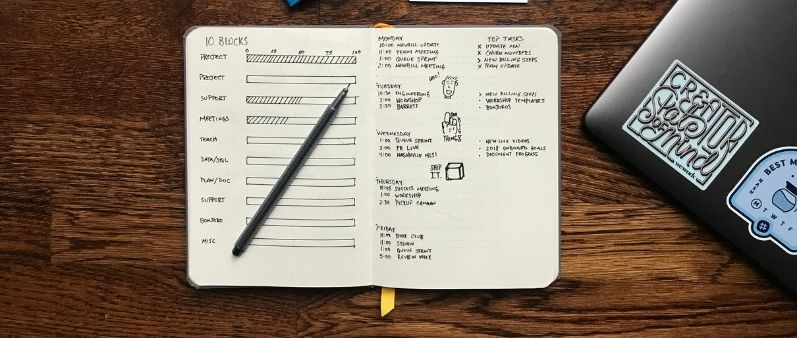 10 BLOCKS
0 25 50 75 100
PROJECT
PROJECT
SUPPORT
MEETINGS
TEACH
DATA/SQL
PLAN/DOC
SUPPORT
BONJORO
MISC
MONDAY
10:00 NEWBILL UPDATE
11:00 TEAM MEETING
1:00 QUEUE SPRINT
2:00 NEWBILL MEETING
TOP TASKS
X UPDATE
X CHURN NUMBERS
> NEW BILLING STEPS
X TEAM UPDATE
TUESDAY
10:30 ENGINEERING
2:00 WORKSHOP
3:00 BARRETT
> NEW BILLING STEPS
• WORKSHOP TEMPLATES
• BONJOROS
THINGS
WEDNESDAY
1:00 QUEUE SPRINT
2:00 LIVE
4:00 NASHVILLE
• NEW LIVE VIDEOS
• 2018 ONBOARD GOALS
• DOCUMENT PROGRESS
SHIP
I.T.
THURSDAY
10:45 SUCCESS MEETING
1:00 WORKSHOP
2:30 PICKUP CANAAN
FRIDAY
BOOK CLUB
11:00 STEVEN
1:00 QUEUE SPRINT
3:00 REVIEW WEEK
CREATOR
State
of
Mind
BEST M
T W T F
#